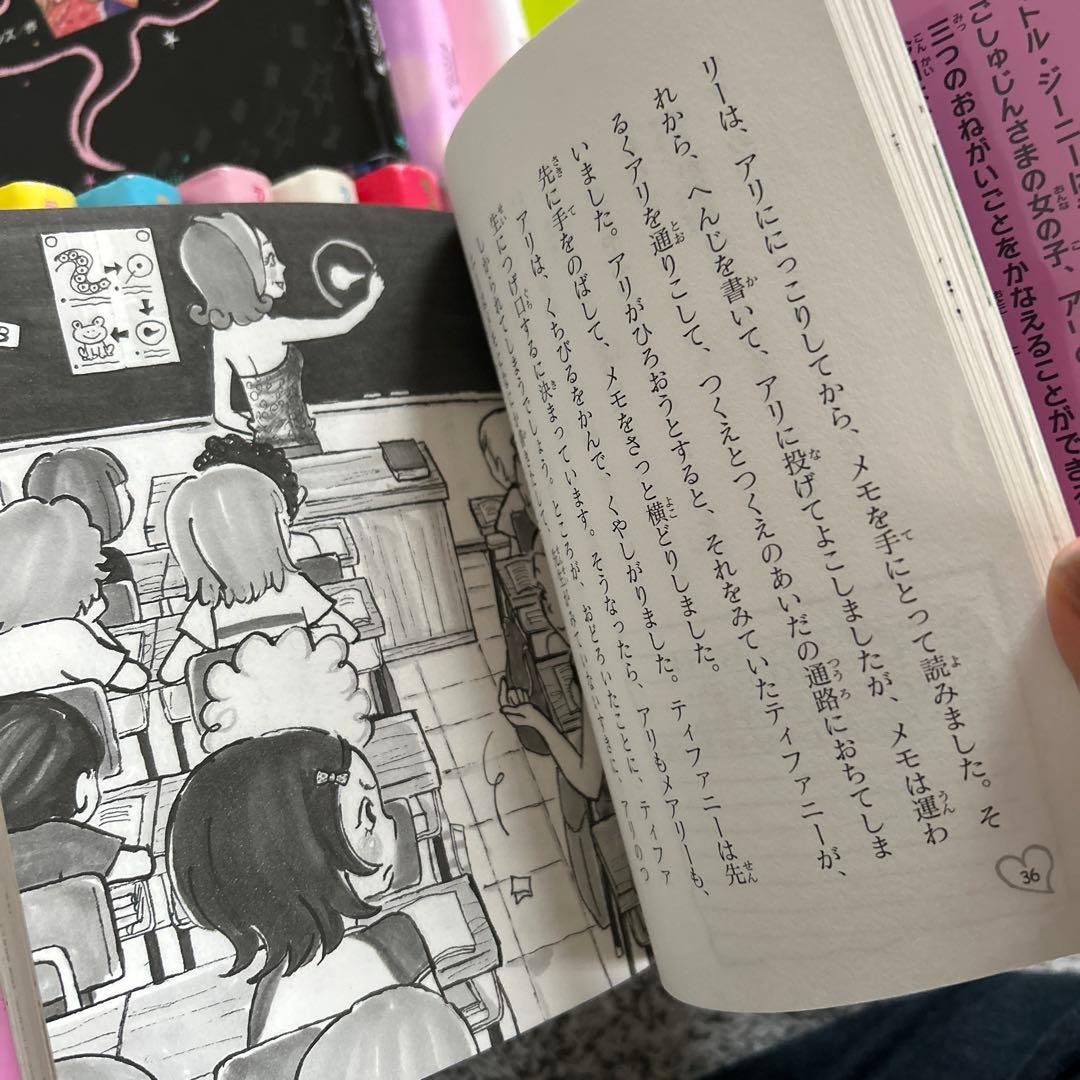 リーは、アリににっこりしてから、メモを手にとって読みました。そ
れから、へんじを書いて、アリに投げてよこしましたが、メモは運わ
るくアリを通りこして、つくえとつくえのあいだの通路におちてしま
いました。アリがひろおうとすると、それをみていたティファニーが、
先に手をのばして、メモをさっと横どりしました。
アリは、くちびるをかんで、くやしがりました。ティファニーは先
生につげ口するに決まっています。そうなったら、アリもメアリーも、
しかられてしまうでしょう。ところが、おどろいたことに、ティファ
36
トル・ジーニーは
ごしゅじんさまの女の子、ア
三つのおねがいごとをかなえることができ